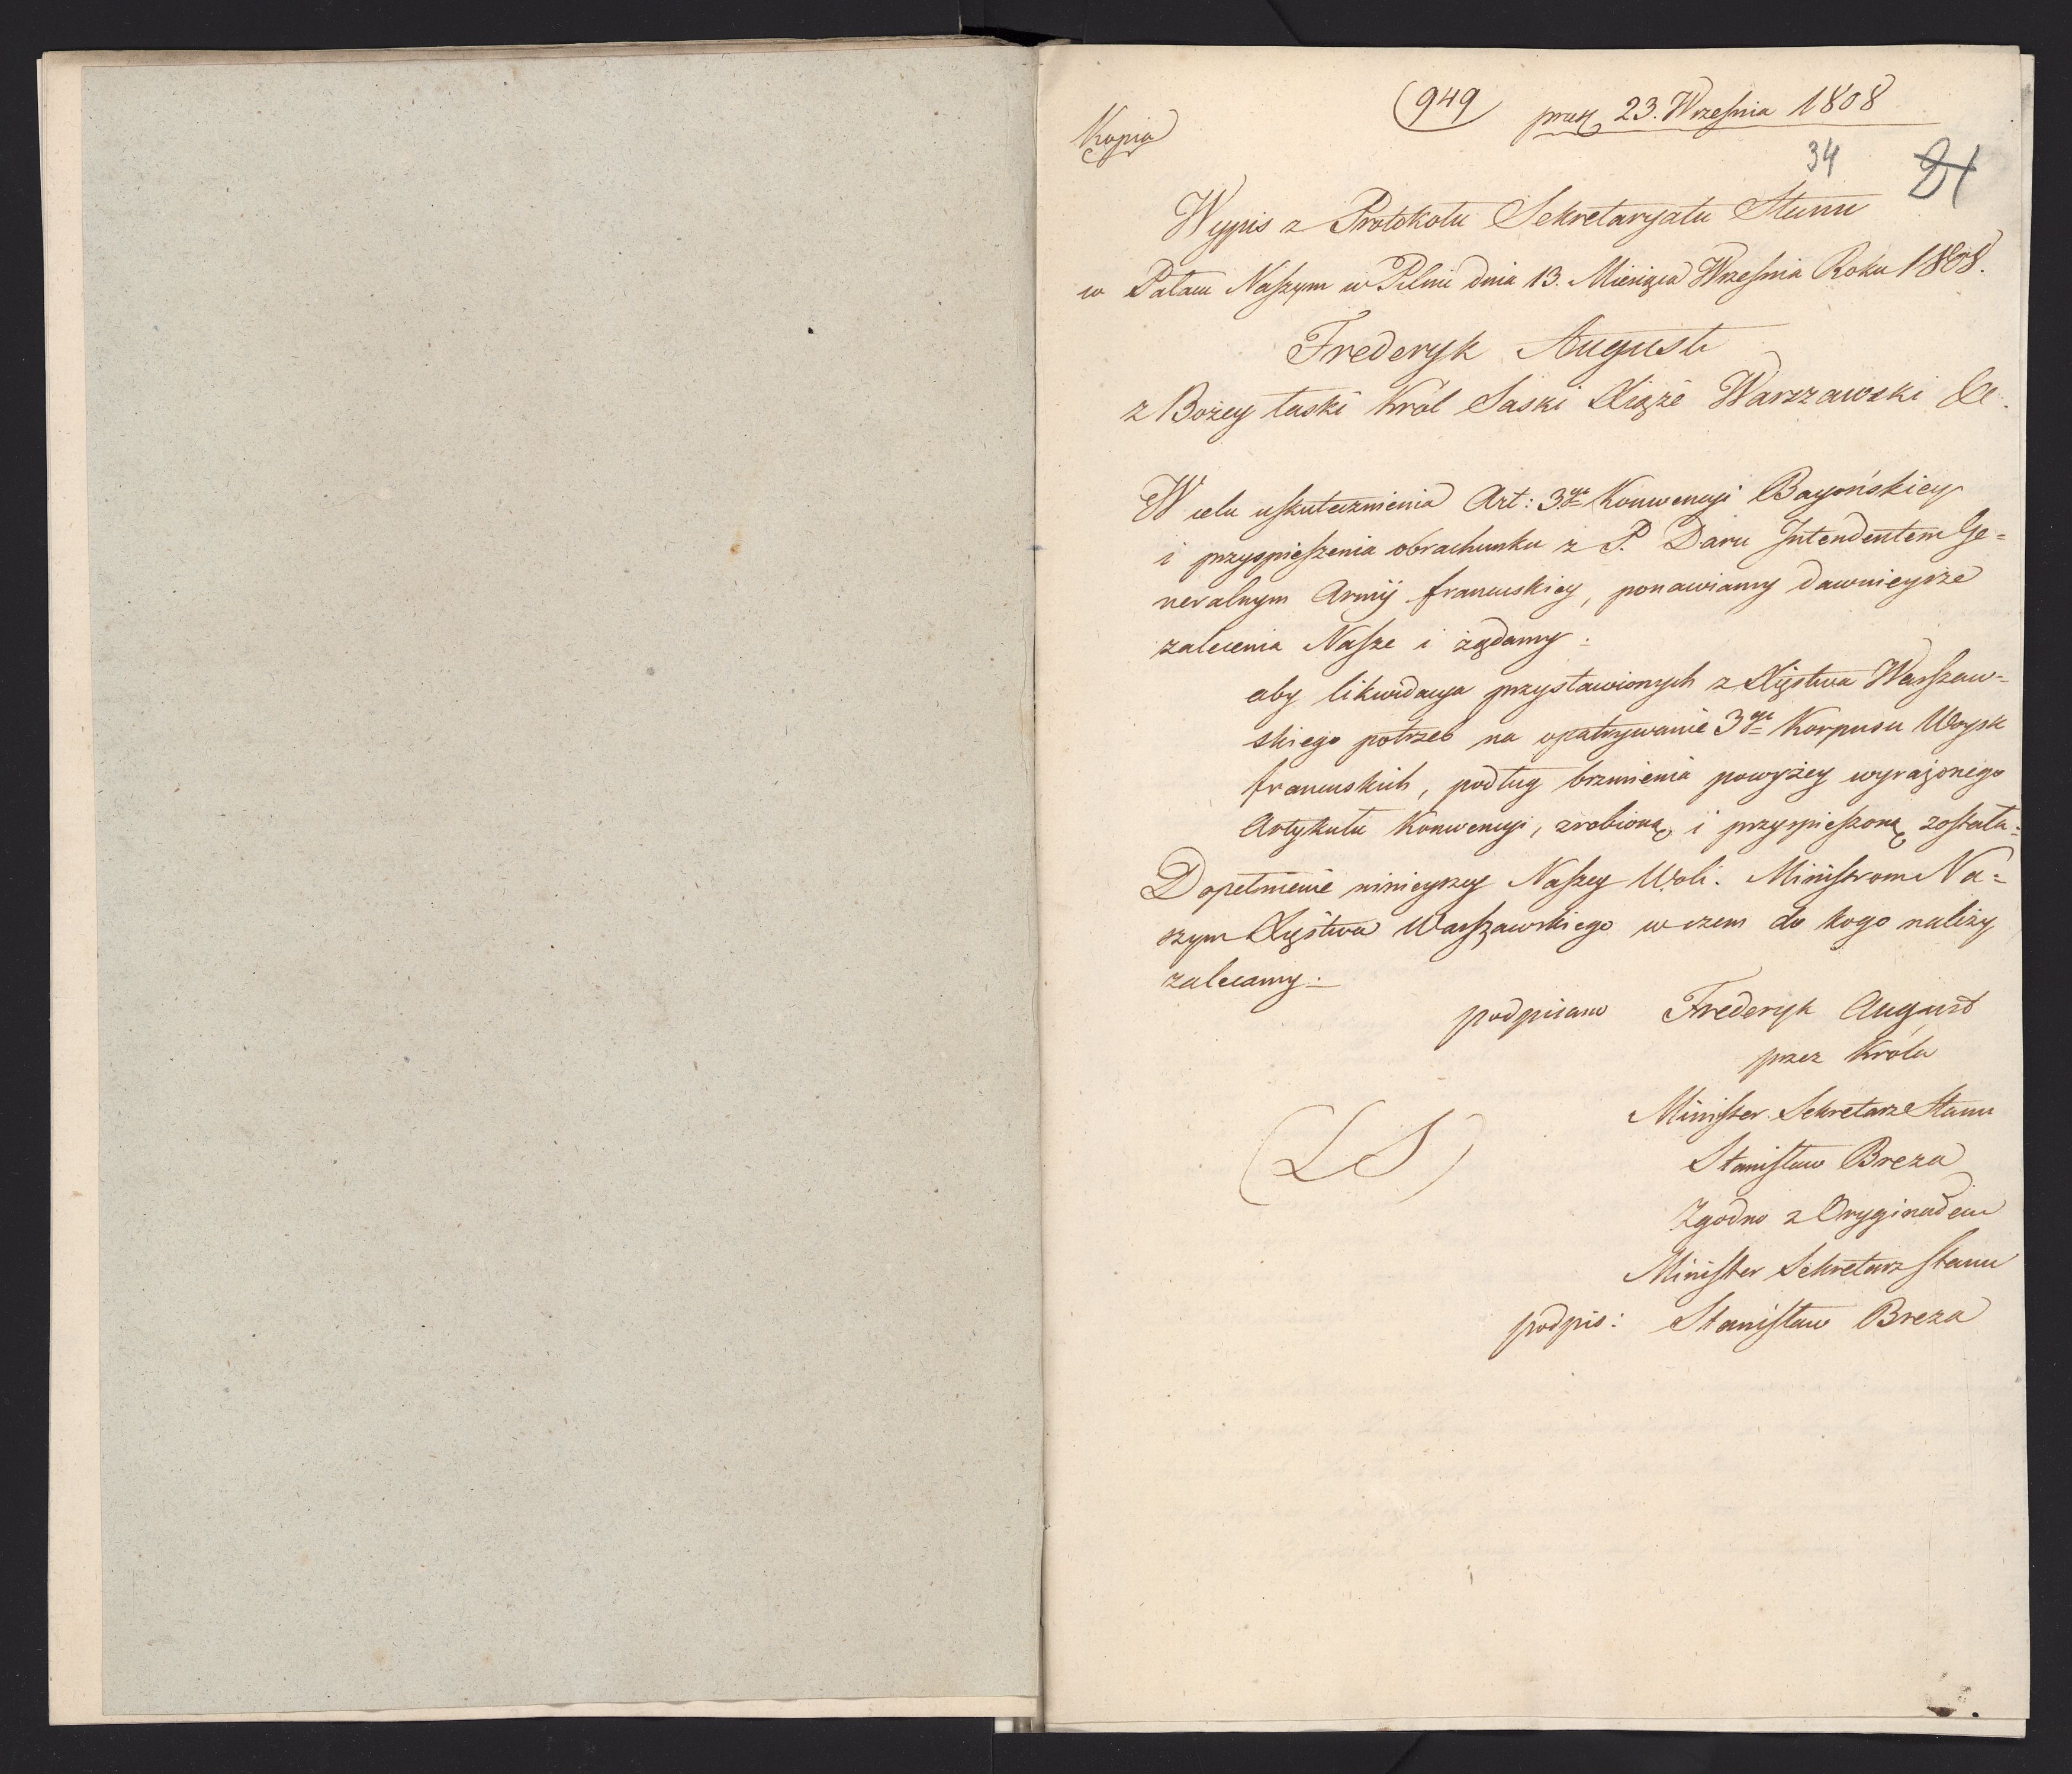 (949) praes 23. Września 1808
Kopia
34 21
Wypis z Protokołu Sekretaryatu Stanu
w Pałacu Naszym w Pilnic dnia 13. Miesiąca Września Roku 1808.
Frederyk August
z Bożey łaski Król Saski Xiąże Warszawski &c.
W celu uskutecznienia Art: 3go Konwencyi Bayońskiey
i przyspieszenia obrachunku z P. Daru Intendentem Ge=
neralnym Armij francuskiey, ponawiamy dawnieysze
zalecenia Nasze i żądamy:
aby likwidacya przystawionych z Xięstwa Warszaw=
skiego potrzeb na opatrywanie 3go Korpusu Woysk
francuskich, podług brzmienia powyżey wyrażonego
Artykułu Konwencyi, zrobioną i przyspieszoną została:
Dopełnienie ninieyszey Naszey Woli. Ministrom Na=
szym Xięstwa Warszawskiego w czem do kogo należy
zalecamy:
podpisano Frederyk August
przez Króla
Minister Sekretarz Stanu
(LS)
Stanisław Breza
Zgodno z Oryginałem
Minister Sekretarz Stanu
podpis: Stanisław Breza